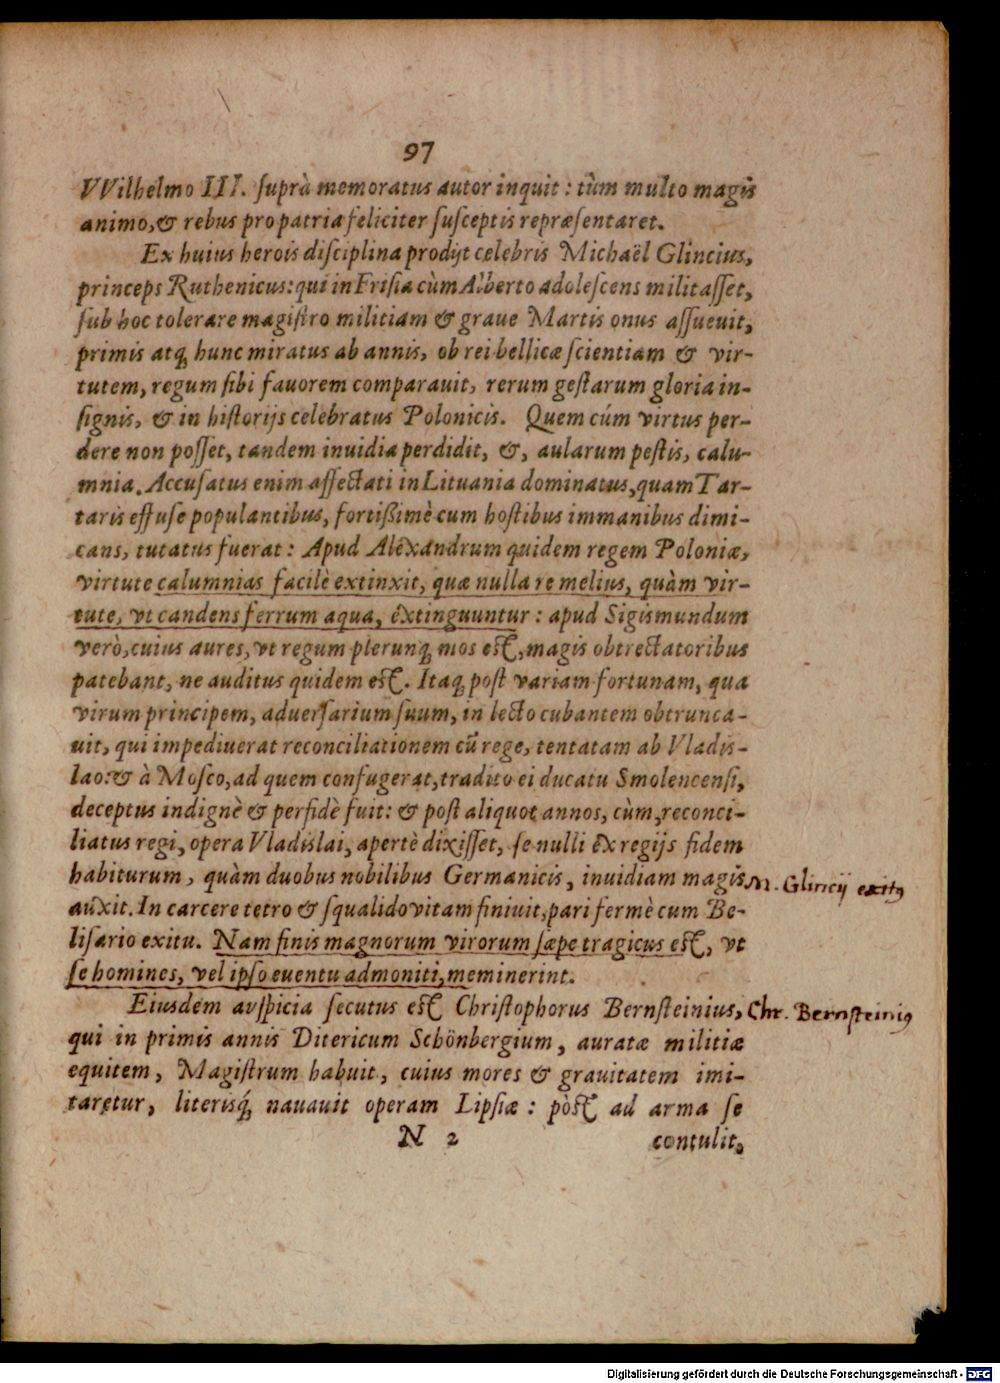 97
VVilhelmo III. ſuprà memoratus autor inquit: tùm multo magis
animo, & rebus pro patria feliciter ſuſceptis repræſentaret.
Ex huius herois diſciplina prodijt celebris Michaël Glincius,
princeps Ruthenicus: qui in Friſia cùm Alberto adoleſcens militaſſet,
ſub hoc tolerare magiſtro militiam & graue Martis onus aſſueuit,
primis atq; hunc miratus ab annis, ob rei bellicæ ſcientiam & vir-
tutem, regum ſibi fauorem comparauit, rerum geſtarum gloria in-
ſignis, & in hiſtorijs celebratus Polonicis. Quem cúm virtus per-
dere non poſſet, tandem inuidia perdidit, &, aularum peſtis, calu-
mnia. Accuſatus enim affectati in Lituania dominatus, quam Tar-
taris effuse populantibus, fortiſsimè cum hoſtibus immanibus dimi-
cans, tutatus fuerat: Apud Alexandrum quidem regem Poloniæ,
virtute calumnias facilè extinxit, quæ nulla re melius, quàm vir-
tute, vt candens ferrum aqua, extinguuntur: apud Sigismundum
verò, cuius aures, vt regum plerunq; mos eſt, magis obtrectatoribus
patebant, ne auditus quidem eſt. Itaq; poſt variam fortunam, qua
virum principem, aduerſarium ſuum, in lecto cubantem obtrunca-
uit, qui impediuerat reconciliationem cū rege, tentatam ab Vladis-
lao: & à Moſco, ad quem confugerat, tradito ei ducatu Smolencenſi,
deceptus indignè & perfidè fuit: & poſt aliquot annos, cùm, reconci-
liatus regi, opera Vladislai, apertè dixiſſet, ſe nulli ex regijs fidem
habiturum, quàm duobus nobilibus Germanicis, inuidiam magis
M. Glincij exitꝰ
auxit. In carcere tetro & ſqualido vitam finiuit, pari fermè cum Be-
liſario exitu. Nam finis magnorum virorum ſæpe tragicus eſt, vt
ſe homines, vel ipſo euentu admoniti, meminerint.
Eiusdem auſpicia ſecutus eſt Chriſtophorus Bernſteinius,
Chr. Bernſteiniꝰ
qui in primis annis Ditericum Schönbergium, auratæ militiæ
equitem, Magiſtrum habuit, cuius mores & grauitatem imi-
taretur, literisq́; nauauit operam Lipſiæ: pòſt ad arma ſe
N 2
contulit,
Digitalisierung gefördert durch die Deutsche Forschungsgemeinschaft - DFG